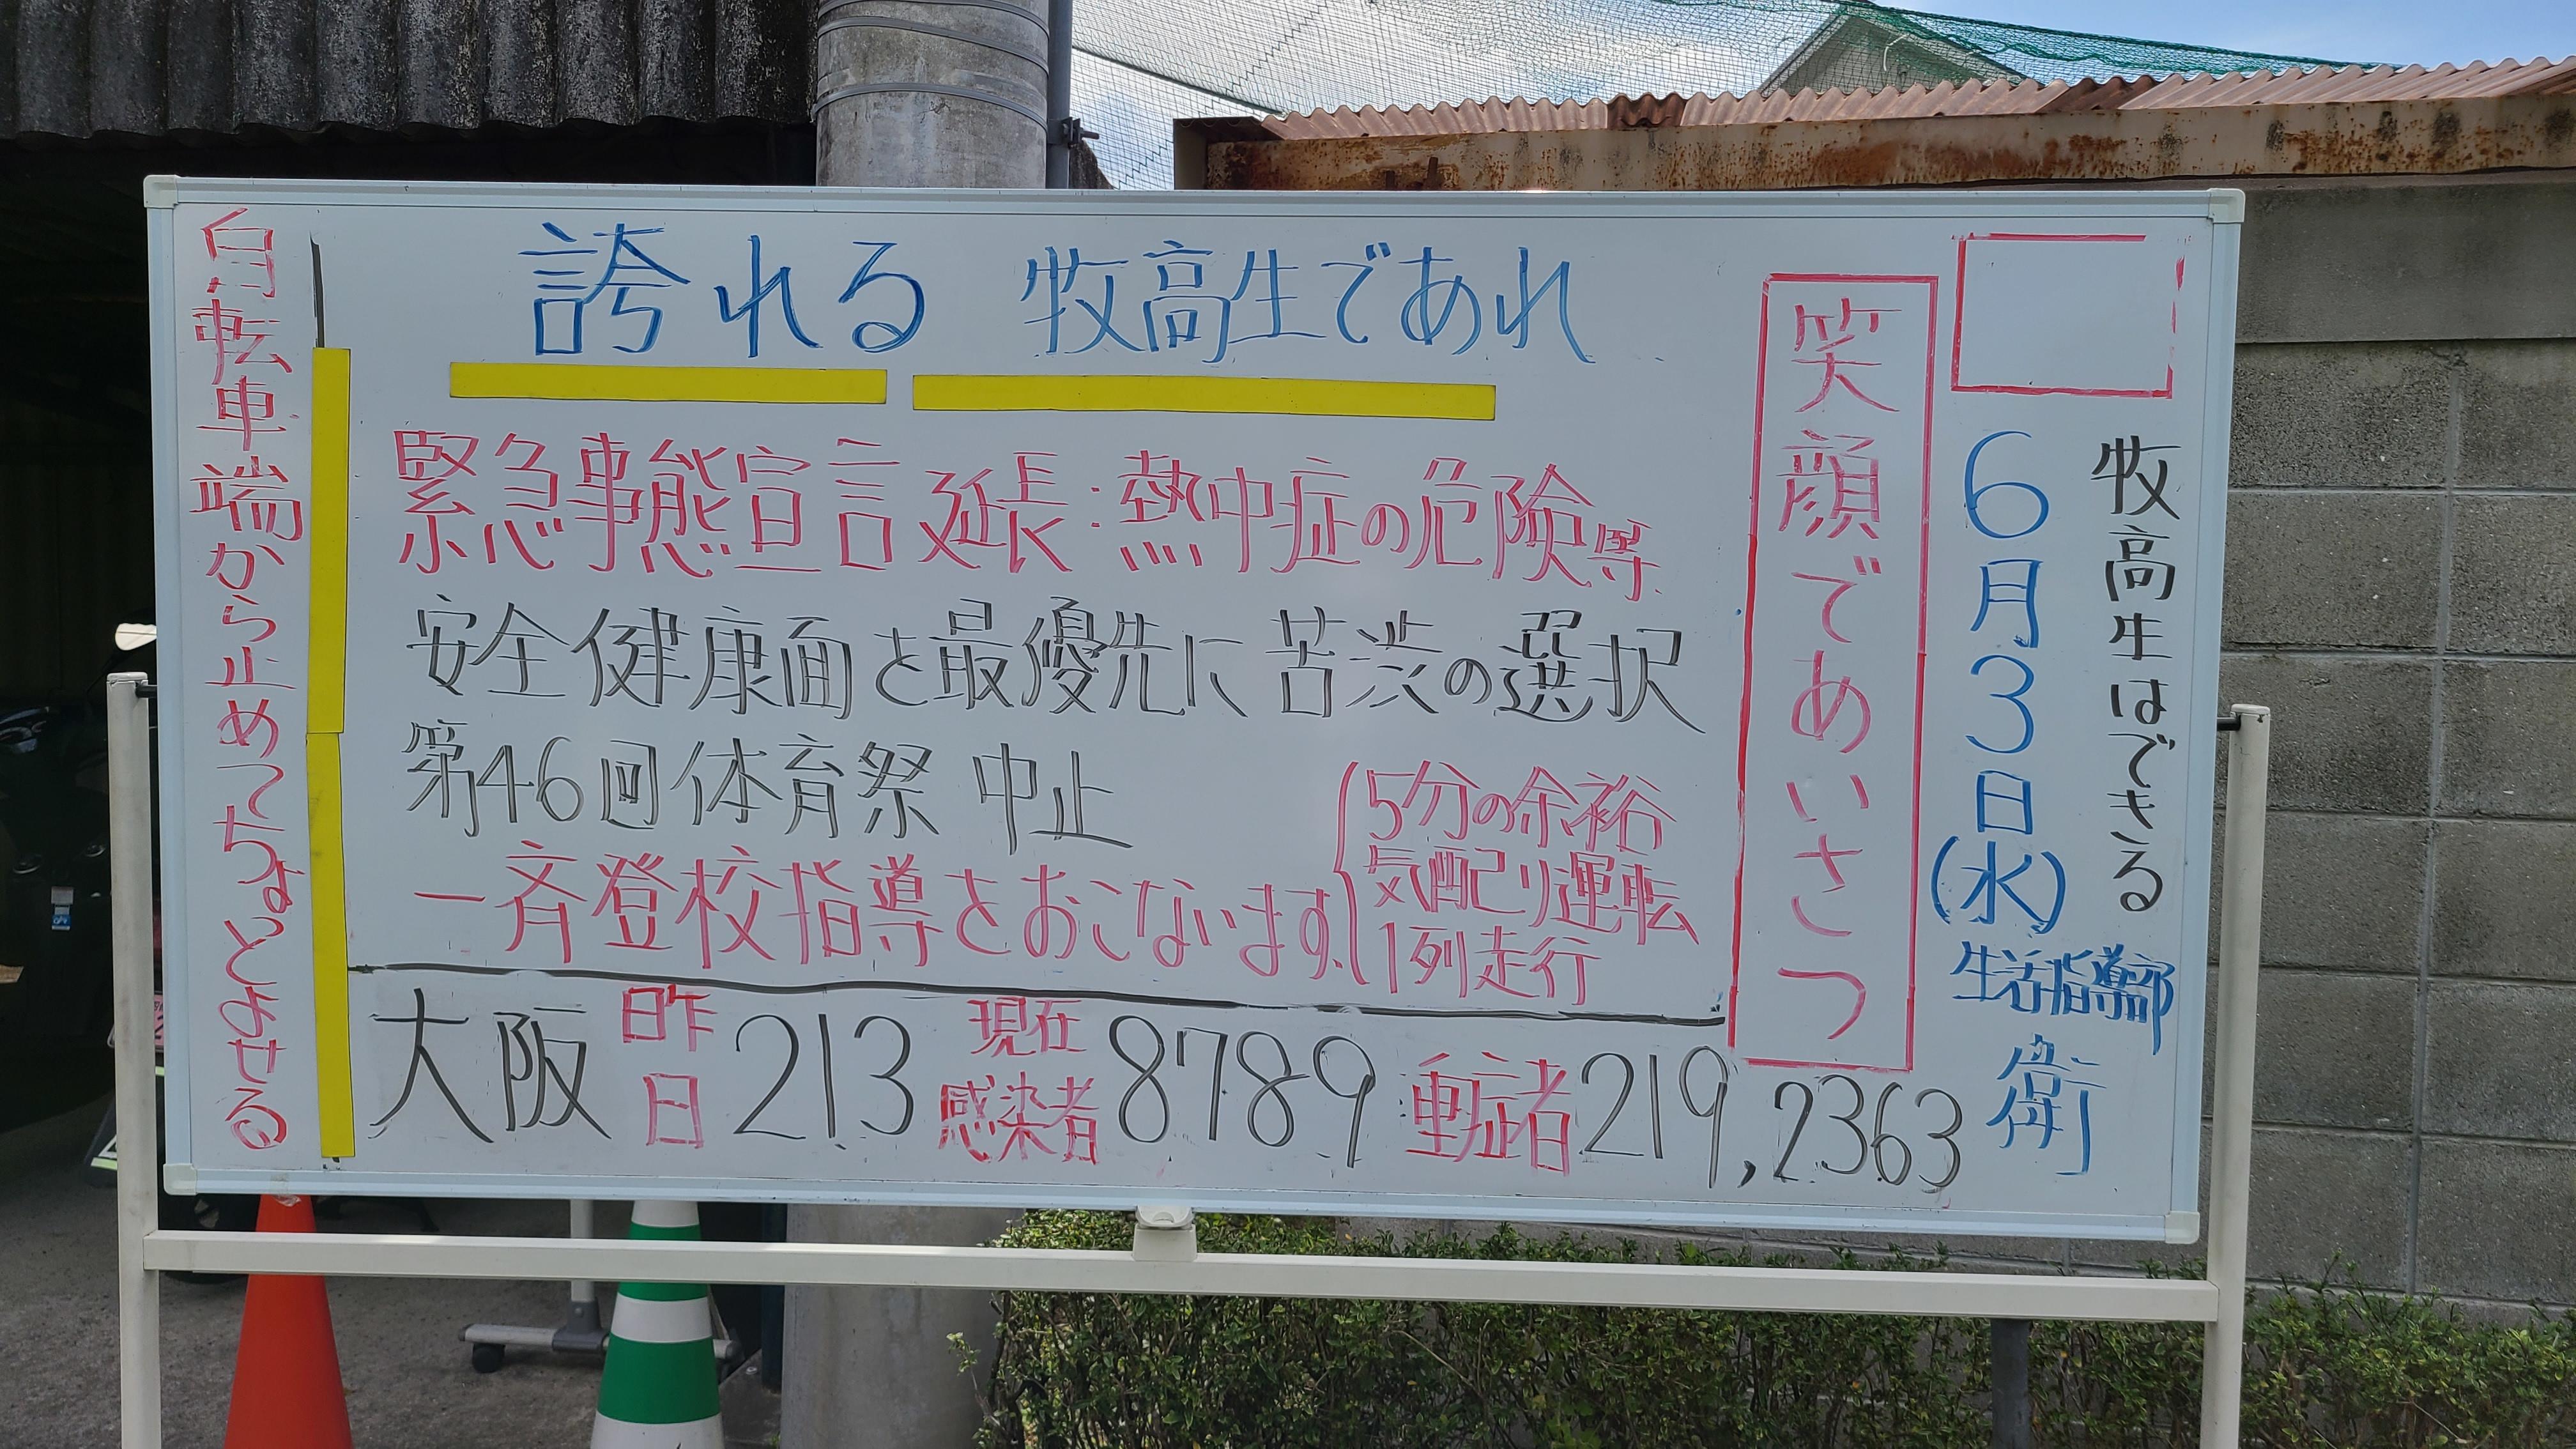 牧高生はできる
6月3日(水)
生活指導部
衛
笑顔であいさつ
誇れる 牧高生であれ
緊急事態宣言延長:熱中症の危険等
安全健康面を最優先に苦渋の選択
第46回体育祭 中止
一斉登校指導をおこないます。
5分の余裕
気配り運転
1列走行
大阪 昨日 213 現在感染者 8789 重症者 219,2363
自転車端から止めてちょっとよせる